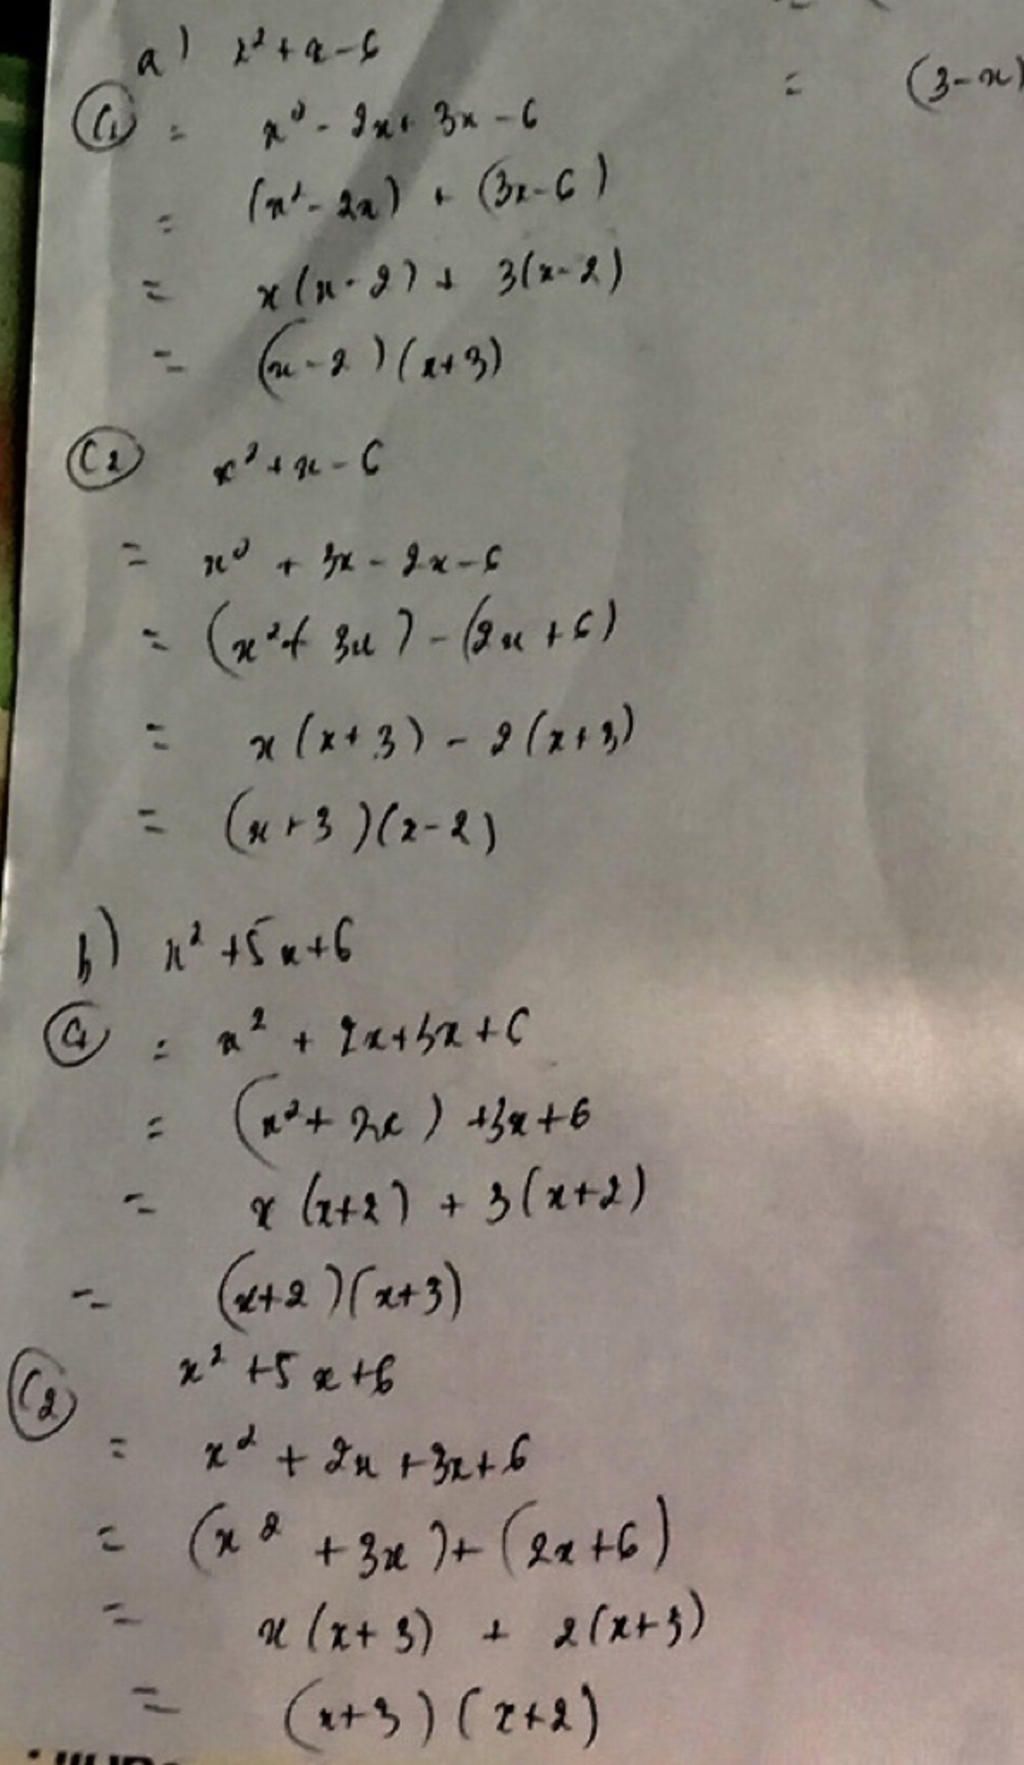 a) x² + x - 6
= (3-x)
C1 = x² - 2x + 3x - 6
= (x² - 2x) + (3x - 6)
= x(x - 2) + 3(x - 2)
= (x - 2)(x + 3)
C2 x² + x - 6
= x² + 3x - 2x - 6
= (x² + 3x) - (2x + 6)
= x(x + 3) - 2(x + 3)
= (x + 3)(x - 2)
b) x² + 5x + 6
C1 = x² + 2x + 3x + 6
= (x² + 2x) + 3x + 6
= x(x+2) + 3(x+2)
= (x+2)(x+3)
C2 x² + 5x + 6
= x² + 2x + 3x + 6
= (x² + 3x) + (2x + 6)
= x(x + 3) + 2(x+3)
= (x+3)(x+2)